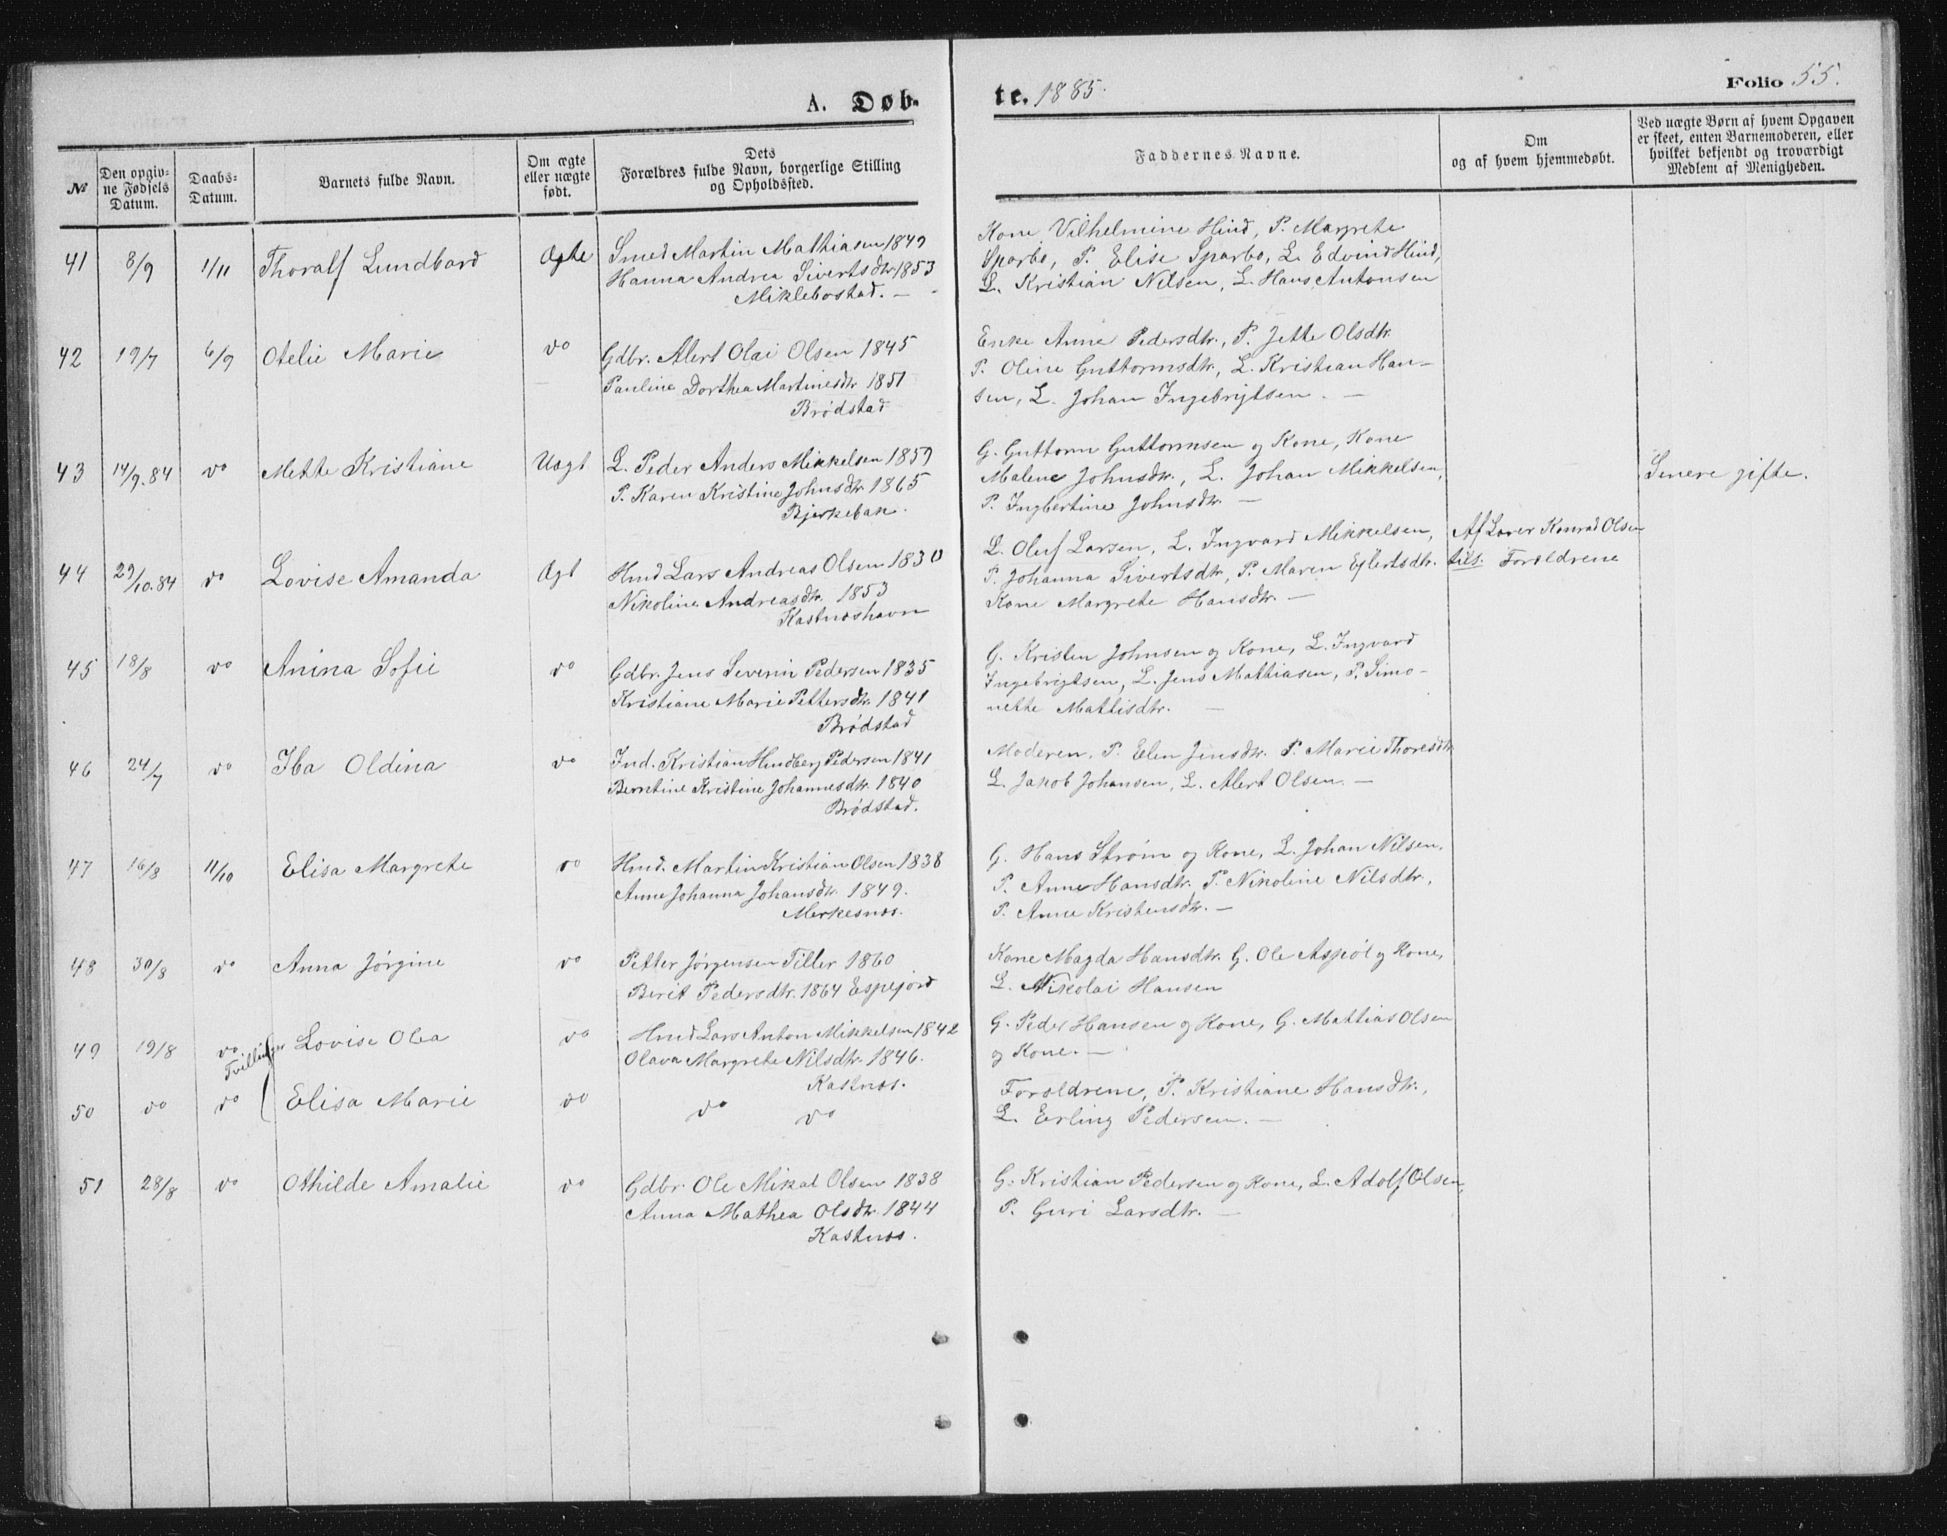 A. Døb-
te. 1885.
Folio 55.
№
Den opgiv-
ne Fødsels
Datum.
Daabs-
Datum.
Barnets fulde Navn.
Om ægte
eller uægte
født.
Dets
Forældres fulde Navn, borgerlige Stilling
og Opholdssted.
Faddernes Navne.
Om
og af hvem hjemmedøbt.
Ved uægte Børn af hvem Opgaven
er skeet, enten Barnemoderen, eller
hvilket bekjendt og troværdigt
Medlem af Menigheden.
41 8/9 1/11 Thoralf Lundbord Ægte
Smed Martin Mathiasen 1849
Hanna Andrea Sivertsdtr 1853
Miklebostad. —
Kone Vilhelmine Hind, P. Margrete
Sparbo, P. Elise Sparbo, L. Edvind Hind,
L. Kristian Nilsen, L. Hans Antonsen
42 19/7 6/9 Otelie Marie vo
Gdbr. Alert Olai Olsen 1845
Pauline Dorthea Martinesdtr 1851
Brødstad
Enke Anne Pedersdtr., P. Jette Olsdtr.
P. Oline Guttormsdtr, L. Kristian Han-
sen, L. Johan Ingebrigtsen. —
43 14/9.84 vo Mette Kristiane Uægt
L. Peder Anders Mikkelsen 1859
P. Karen Kristine Johnsdtr 1865
Bjerkebak.
G. Guttorm Guttormsen og Kone, Kone
Malene Johnsdtr., L. Johan Mikkelsen,
P. Ingbertine Johnsdtr. —
Senere gifte.
44 29/10.84 vo Lovise Amanda Ægt
Hmd Lars Andreas Olsen 1830
Nikoline Andreasdtr. 1853
Kastnæshavn
L. Oluf Larsen, L. Ingvard Mikkelsen,
P. Johanna Sivertsdtr, P. Maren Ejlertsdtr.
Kone Margrete Hansdtr. —
Af Lærer Konrad Olsen
tils. Forældrene
45 18/8 vo Anina Sofie vo
Gdbr. Jens Severin Pedersen 1835
Kristiane Marie Pettersdtr. 1841
Brødstad
G. Kristen Johnsen og Kone, L. Ingvard
Ingebrigtsen, L. Jens Mathiasen, P. Simo-
nette Mattisdtr. —
46 24/7 vo Iba Oldina vo
Ind. Kristian Hindberg Pedersen 1841
Berntine Kristine Johannesdtr. 1840
Brødstad.
Moderen, P. Elen Jensdtr. P. Marie Thoresdtr
L. Jakob Johansen, L. Alert Olsen. —
47 16/8 11/10 Elisa Margrete vo
Hmd. Martin Kristian Olsen 1838
Anne Johanna Johansdtr. 1849.
Merkesnæs.
G. Hans Strøm og Kone, L. Johan Nilsen,
P. Anne Hansdtr. P. Nikoline Nilsdtr,
P. Anne Kristensdtr. —
48 30/8 vo Anna Jørgine vo
Petter Jørgensen Tiller 1860
Berit Pedersdtr. 1864 Espejord
Kone Magda Hansdtr. G. Ole Aspøl og Kone,
L. Nikolai Hansen
49 19/8 vo Tvillinger Lovise Olea vo
Hmd Lars Anton Mikkelsen 1842
Olava Margrete Nilsdtr. 1846.
Kastnæs.
G. Peder Hansen og Kone, G. Mattias Olsen
og Kone. —
50 vo vo Elisa Marie vo
vo vo
Forældrene, P. Kristiane Hansdtr.,
L. Erling Pedersen. —
51 28/8 vo Othilde Amalie vo
Gdbr. Ole Mikal Olsen 1838
Anna Mathea Olsdtr. 1844
Kastnæs.
G. Kristian Pedersen og Kone, L. Adolf Olsen,
P. Guri Larsdtr. —